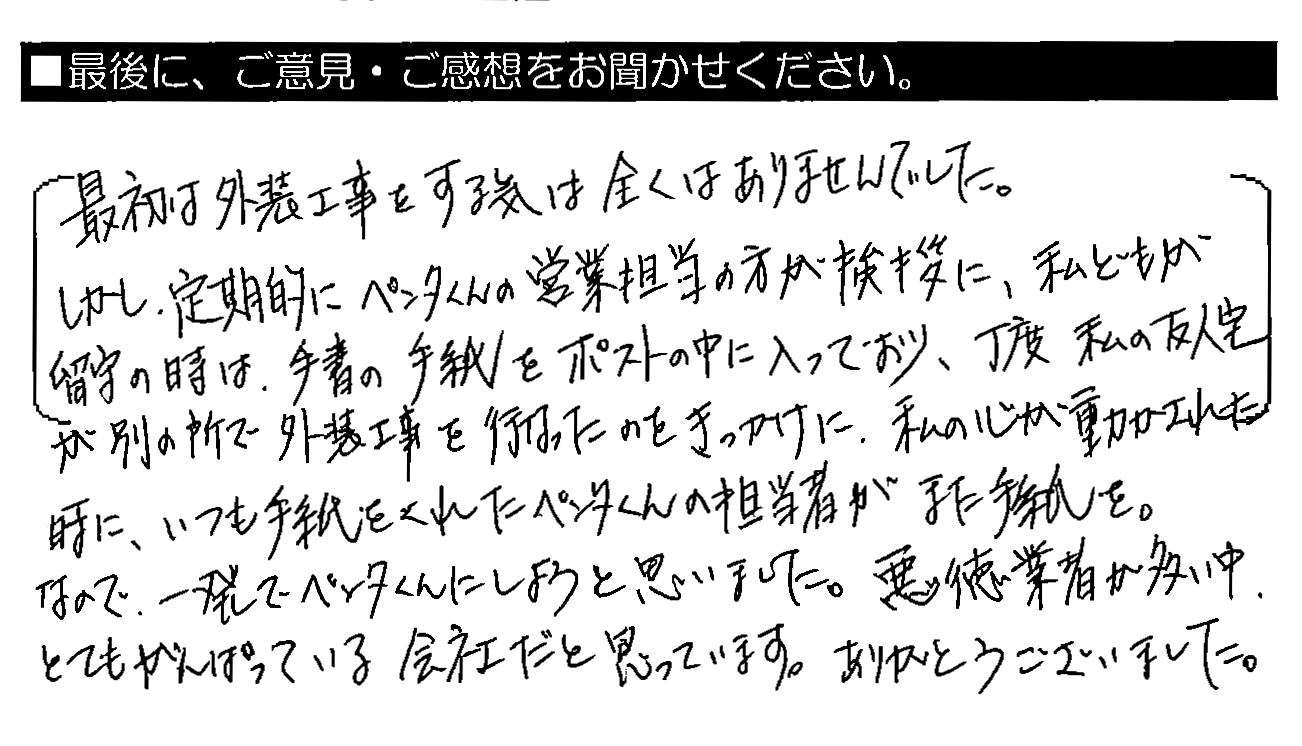 ■最後に、ご意見・ご感想をお聞かせください。
最初は外装工事をする気は全くはありませんでした。
しかし、定期的にペンタくんの営業担当の方が挨拶に、私どもが
留守の時は、手書の手紙をポストの中に入っており、丁度 私の友人宅
が別の所で外装工事を行なったのをきっかけに、私の心が動かされた
時に、いつも手紙をくれたペンタくんの担当者がまた手紙を。
なので、一発でペンタくんにしようと思いました。悪徳業者が多い中、
とてもがんばっている会社だと思っています。ありがとうございました。